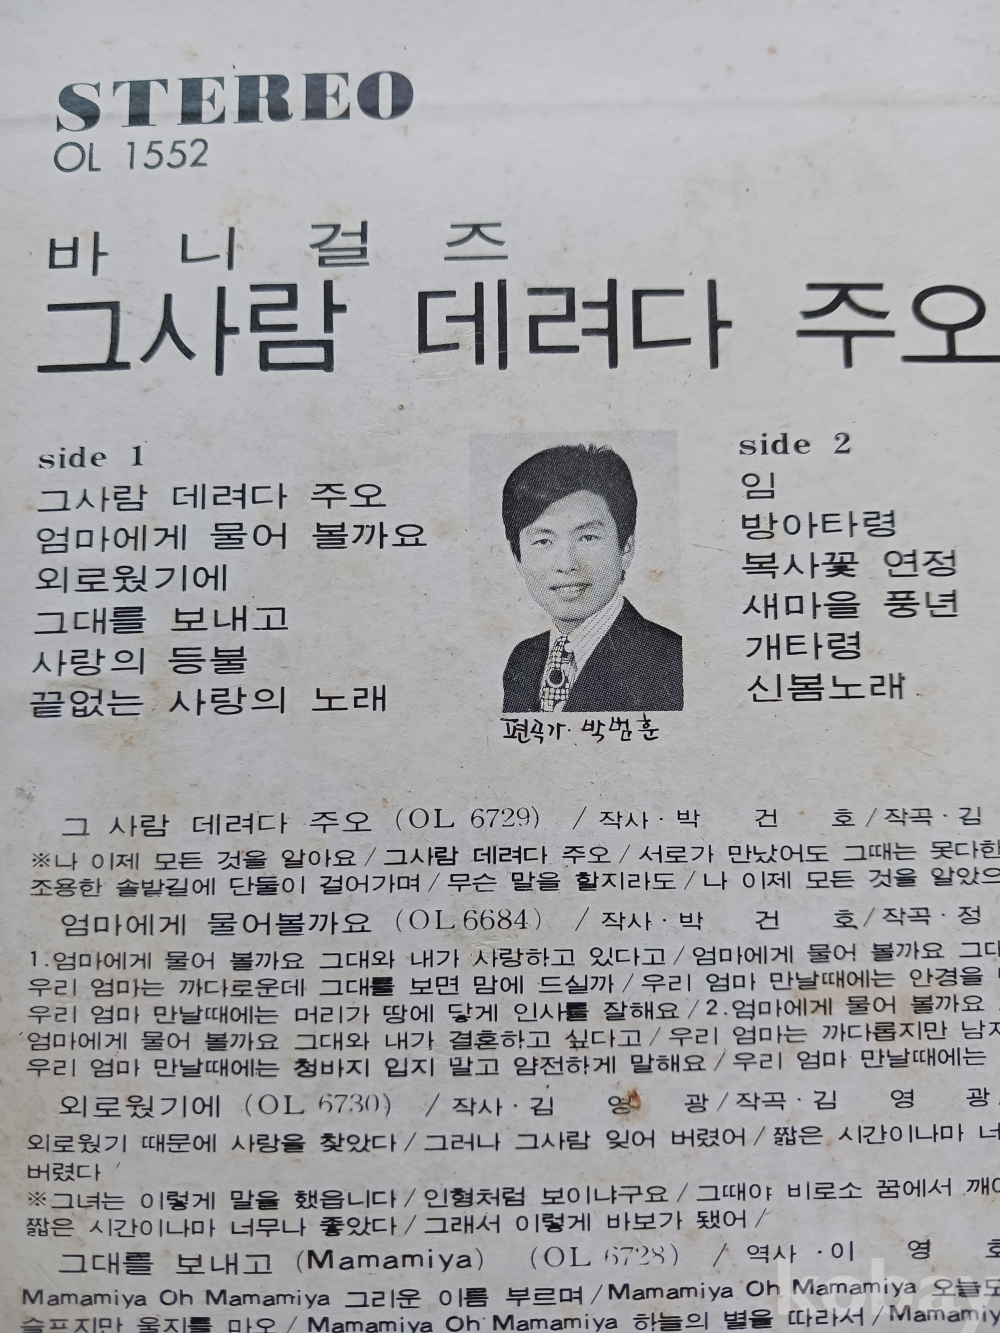 STEREO
OL 1552
바 니 걸 즈
그사람 데려다 주오
side 1
그사람 데려다 주오
엄마에게 물어 볼까요
외로웠기에
그대를 보내고
사랑의 등불
끝없는 사랑의 노래
편곡가· 박범훈
side 2
임
방아타령
복사꽃 연정
새마을 풍년
개타령
신봄노래
그 사람 데려다 주오 (OL 6729) / 작사·박 건 호/작곡·김
※나 이제 모든 것을 알아요/그사람 데려다 주오/서로가 만났어도 그때는 못다한
조용한 솔밭길에 단둘이 걸어가며/무슨 말을 할지라도/나 이제 모든 것을 알았으
엄마에게 물어볼까요 (OL6684) / 작사·박 건 호/작곡·정
1.엄마에게 물어 볼까요 그대와 내가 사랑하고 있다고/엄마에게 물어 볼까요 그대
우리 엄마는 까다로운데 그대를 보면 맘에 드실까/우리 엄마 만날때에는 안경을
우리 엄마 만날때에는 머리가 땅에 닿게 인사를 잘해요/2.엄마에게 물어 볼까요
엄마에게 물어 볼까요 그대와 내가 결혼하고 싶다고/우리 엄마는 까다롭지만 남자
우리 엄마 만날때에는 청바지 입지 말고 얌전하게 말해요/우리 엄마 만날때에는
외로웠기에 (OL 6730) / 작사·김 영 광/작곡·김 영 광
외로웠기 때문에 사랑을 찾았다/그러나 그사람 잊어 버렸어/짧은 시간이나마 너
버렸다
※그녀는 이렇게 말을 했읍니다/인형처럼 보이냐구요/그때야 비로소 꿈에서 깨어
짧은 시간이나마 너무나 좋았다/그래서 이렇게 바보가 됐어/
그대를 보내고 (Mamamiya) (OL 6728) / 역사·이 영 호
Mamamiya Oh Mamamiya 그리운 이름 부르며/Mamamiya Oh Mamamiya 오늘도
슬프지만 울지를 마오/Mamamiya Oh Mamamiya 하늘의 별을 따라서/Mamamiy